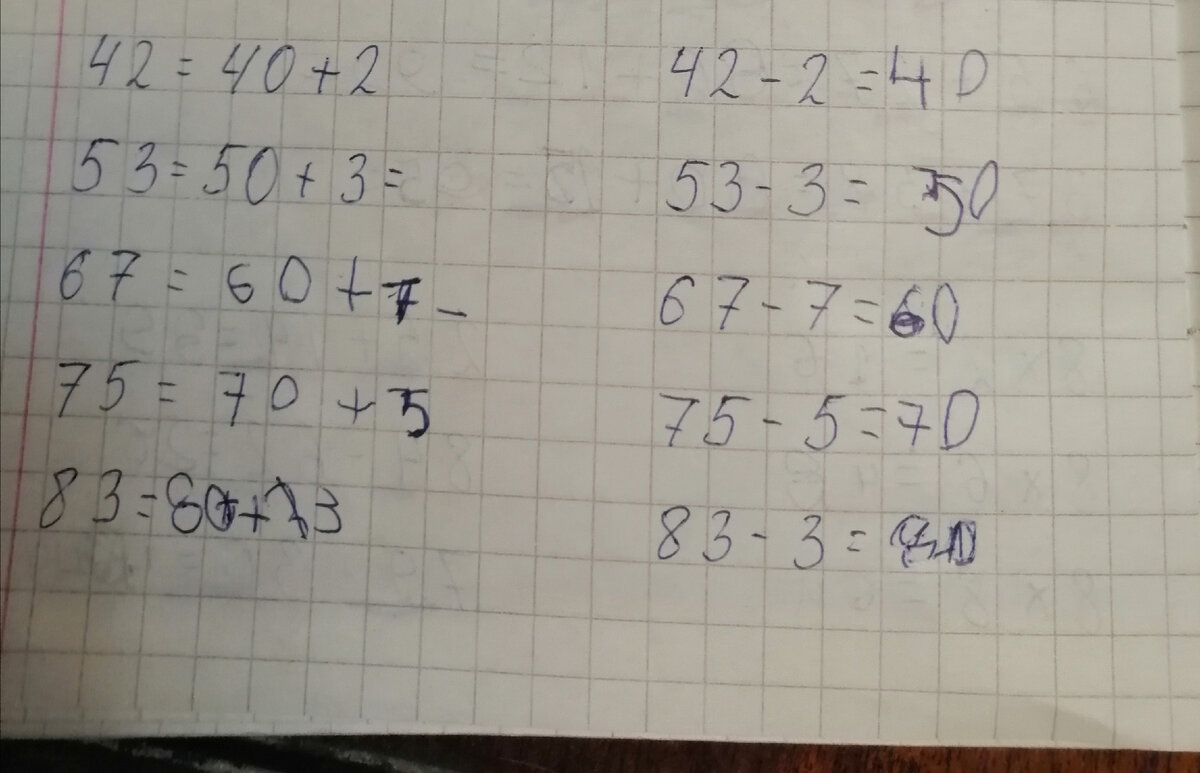 42 = 40 + 2 42 - 2 = 40
53 = 50 + 3 = 53 - 3 = 50
67 = 60 + 7 - 67 - 7 = 60
75 = 70 + 5 75 - 5 = 70
83 = 80 + 3 83 - 3 =